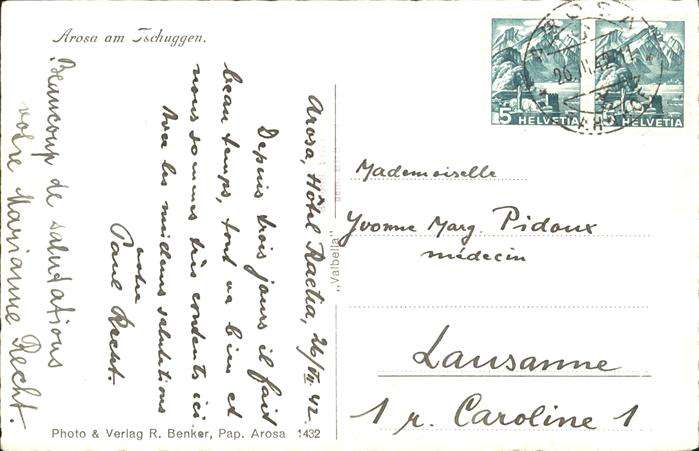 Arosa am Tschuggen.
Arosa, Hôtel Raetia, 26/VII 42.
Depuis trois jours il fait
beau temps, tout va bien et
nous sommes très contents ici.
Avec les meilleurs salutations
votre
Paul Recht.
Beaucoup de salutations
votre Marianne Recht.
Photo & Verlag R. Benker, Pap. Arosa 1432
„Valbella“
AROSA
5 HELVETIA
5 HELVETIA
Mademoiselle
Yvonne Marg. Pidoux
médecin
Lausanne
1 r. Caroline 1